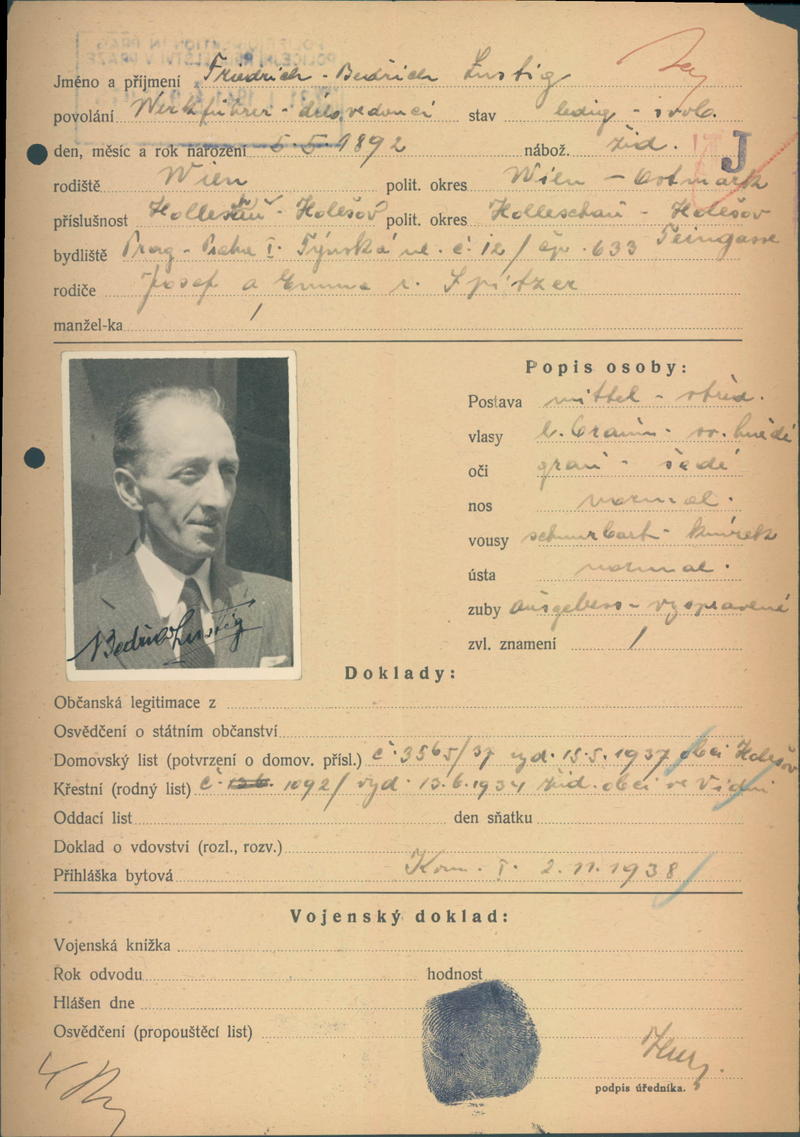 Jméno a příjmení Friedrich - Bedřich Lustig
povolání Werkführer - dílovedoucí stav ledig - svob.
den, měsíc a rok narození 5. 5. 1892 nábož. žid. J
rodiště Wien polit. okres Wien - Ostmark
příslušnost Holleschau - Holešov polit. okres Holleschau - Holešov
bydliště Prag - Praha I. Týnská ul. č. 12 / čp. 633 Teingasse
rodiče Josef a Emma r. Spitzer
manžel-ka /
Popis osoby:
Postava mittel - střed.
vlasy l. braun - sv. hnědé
oči grau - šedé
nos normal.
vousy schnurbart - knírek
ústa normal.
zuby ausgebess - vyspravené
zvl. znamení /
Bedřich Lustig
Doklady:
Občanská legitimace z
Osvědčení o státním občanství
Domovský list (potvrzení o domov. přísl.) č. 3565/37 vyd. 15.5.1937 obcí Holešov
Křestní (rodný list) č. 1092/ vyd. 13.6.1934 žid. obcí ve Vídni
Oddací list den sňatku
Doklad o vdovství (rozl., rozv.)
Přihláška bytová Kom. I. 2.11.1938
Vojenský doklad:
Vojenská knížka
Rok odvodu hodnost
Hlášen dne
Osvědčení (propouštěcí list)
podpis úředníka.